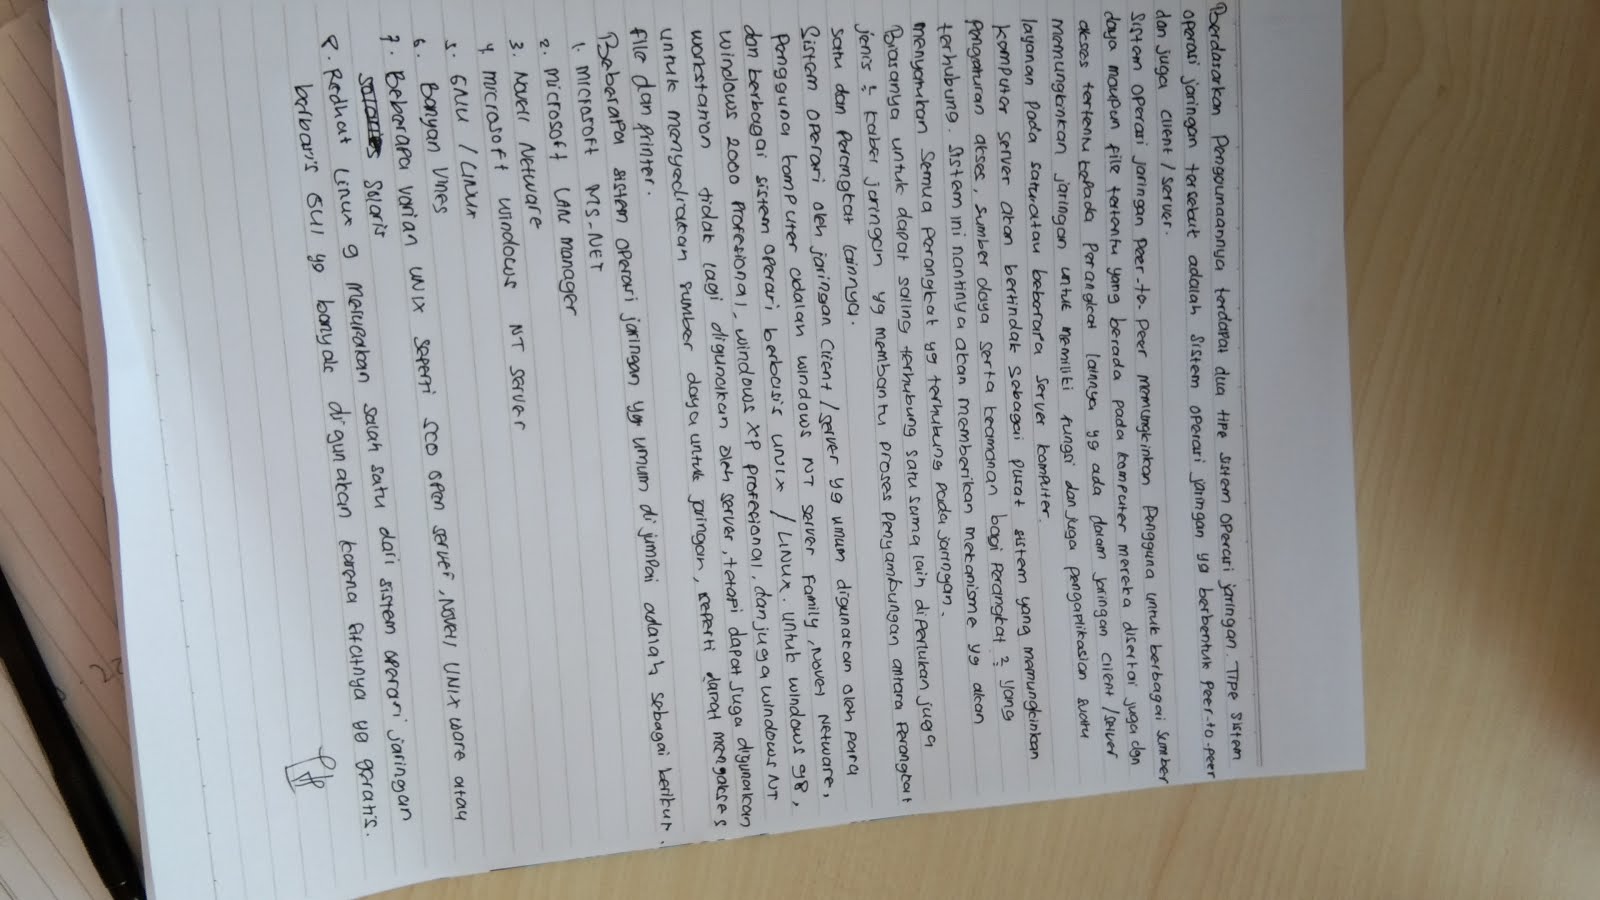 Berdasarkan Penggunaannya terdapat dua tipe sistem operasi jaringan. Tipe sistem
operasi jaringan tersebut adalah sistem operasi jaringan yg berbentuk Peer-to-Peer
dan juga client/server.
Sistem operasi jaringan Peer-to-Peer memungkinkan Pengguna untuk berbagai sumber
daya maupun file tertentu yang berada pada komputer mereka disertai juga dgn
akses tertentu kepada Perangkat lainnya yg ada dalam jaringan client/server
memungkinkan jaringan untuk memiliki fungsi dan juga pengaplikasian suatu
layanan pada satu atau beberapa server komputer.
Komputer server akan bertindak sebagai pusat sistem yang memungkinkan
Pengaturan akses, sumber daya serta keamanan bagi Perangkat2 yang
terhubung. Sistem ini nantinya akan memberikan mekanisme yg akan
menyatukan semua perangkat yg terhubung pada jaringan.
Biasanya untuk dapat saling terhubung satu sama lain diperlukan juga
jenis2 kabel jaringan yg membantu proses penyambungan antara Perangkat
satu dan Perangkat lainnya.
Sistem operasi oleh jaringan Client/server yg umum digunakan oleh para
Pengguna komputer adalah windows NT server Family, Novel Network,
dan berbagai sistem operasi berbasis UNIX / LINUX. Untuk windows 98,
windows 2000 Profesional, windows XP Profesional, dan juga windows NT
workstation tidak lagi digunakan oleh server, tetapi dapat juga digunakan
untuk menyediakan sumber daya untuk jaringan, seperti dapat mengakses
file dan printer.
Beberapa sistem operasi jaringan yg umum dijumpai adalah sebagai berikut.
1. microsoft MS-NET
2. microsoft LAN manager
3. Novell Network
4. microsoft windows NT server
5. GNU / LINUX
6. Banyan Vines
7. Beberapa varian UNIX seperti SCO open server, Novell UNIX ware atau
Solaris
8. Redhat Linux 9 merupakan salah satu dari sistem operasi jaringan
berbasis GUI yg banyak digunakan karena sifatnya yg gratis.